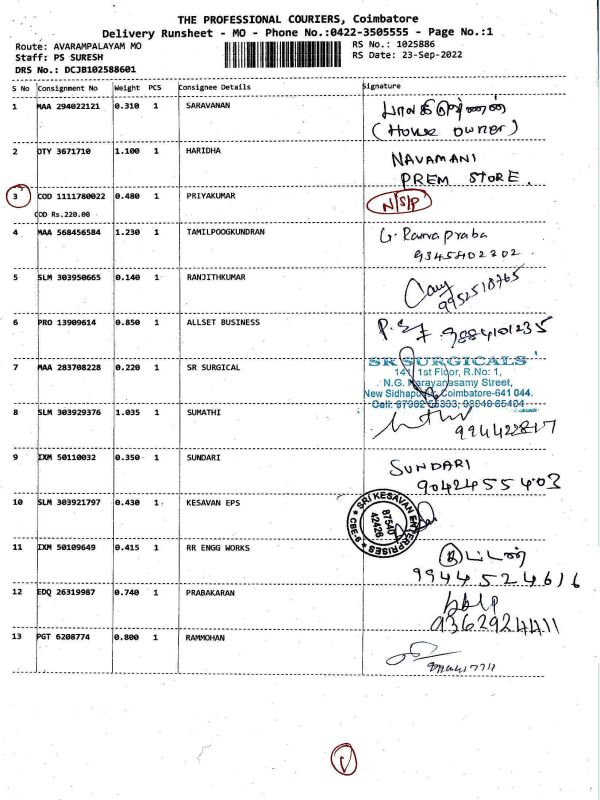 THE PROFESSIONAL COURIERS, Coimbatore
Delivery Runsheet - MO - Phone No.:0422-3505555 - Page No.:1
Route: AVARAMPALAYAM MO RS No.: 1025886
Staff: PS SURESH RS Date: 23-Sep-2022
DRS No.: DCJB102588601
S No Consignment No Weight PCS Consignee Details Signature
1 MAA 294022121 0.310 1 SARAVANAN
(House owner)
2 OTY 3671710 1.100 1 HARIDHA NAVAMANI
PREM STORE.
3 COD 1111780022 0.480 1 PRIYAKUMAR N/S/P
COD Rs.220.00
4 MAA 568456584 1.230 1 TAMILPOOGKUNDRAN G. Ramaprabha
9345402302.
5 SLM 303950665 0.140 1 RANJITHKUMAR
9952518765
6 PRO 13909614 0.850 1 ALLSET BUSINESS 9884101235
7 MAA 283708228 0.220 1 SR SURGICAL SR SURGICALS
141, 1st Floor, R.No: 1,
N.G. Narayanasamy Street,
New Sidhapudur, Coimbatore-641 044.
8 SLM 303929376 1.035 1 SUMATHI
9 IXM 50110032 0.350 1 SUNDARI SUNDARI
9042455403
10 SLM 303921797 0.430 1 KESAVAN EPS SRI KESAVAN ENTERPRISES
CBE-9
87540
42426
11 IXM 50109649 0.415 1 RR ENGG WORKS
9944524616
12 EDQ 26319987 0.740 1 PRABAKARAN
9362924411
13 PGT 6208774 0.800 1 RAMMOHAN
1